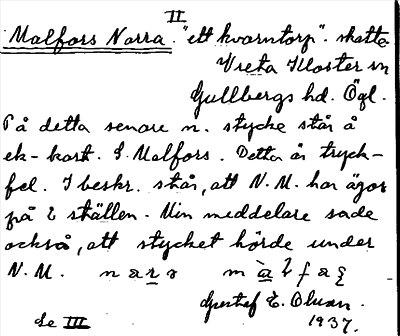 II
Malfors Norra. "ett kvarntorp". skatte
Vreta Kloster sn
Gullbergs hd. Ögl.
På detta senare n. stycke står å
ek-kart. S. Malfors. Detta är tryck-
fel. I beskr. står, att N. M. har ägor
på 2 ställen. Min meddelare sade
också, att stycket hörde under
N. M.
Gustaf E. Olsson.
Se III 1937.